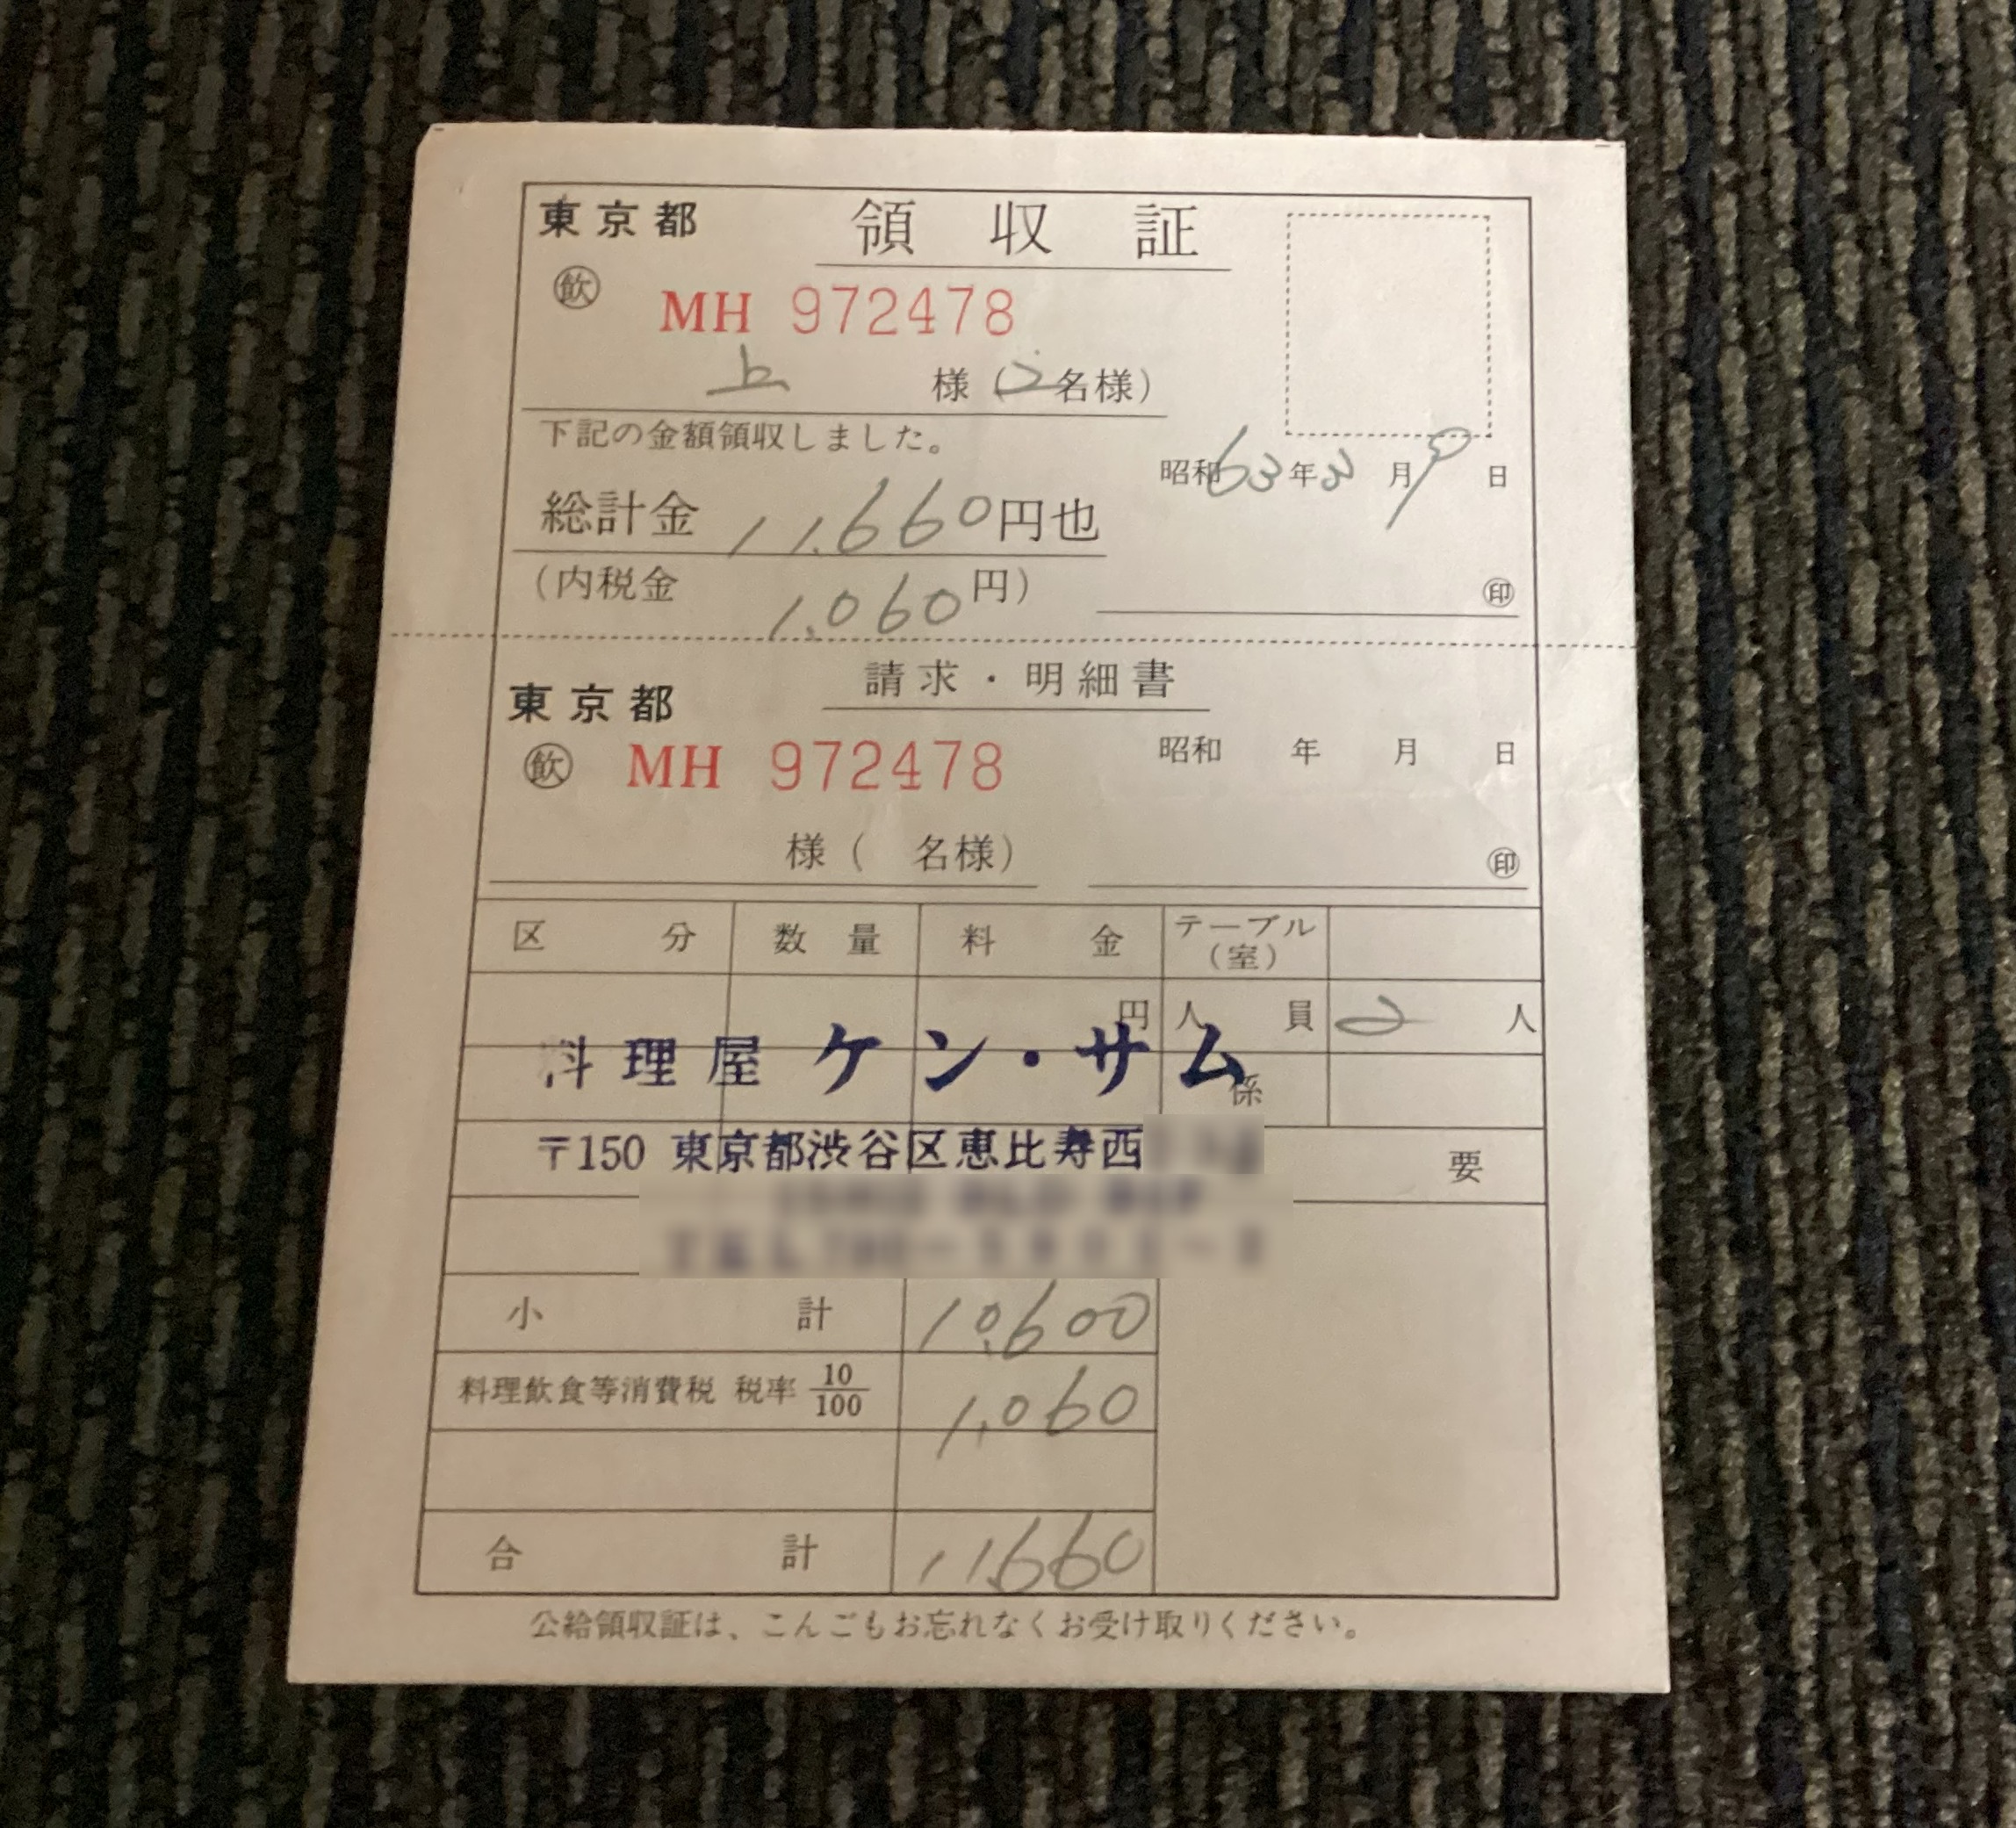 東京都 領収証
飲
MH 972478
上 様 (2名様)
下記の金額領収しました。
昭和63年3月9日
総計金 11,660円也
(内税金 1,060円)
印
東京都 請求・明細書
飲 MH 972478
昭和 年 月 日
様( 名様)
印
区分 数量 料金 テーブル(室)
円 人員 2人
料理屋 ケン・サム
係
〒150 東京都渋谷区恵比寿西
要
小計 10,600
料理飲食等消費税 税率 10/100 1,060
合計 11,660
公給領収証は、こんごもお忘れなくお受け取りください。